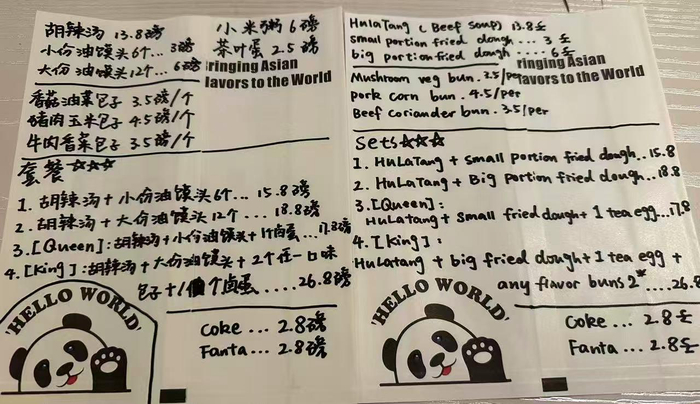 胡辣汤 13.8磅
小份油馍头6个... 3磅
大份油馍头12个... 6磅
小米粥 6磅
茶叶蛋 2.5磅
ringing Asian
lavors to the World
香菇油菜包子 3.5磅/个
猪肉玉米包子 4.5磅/个
牛肉香菜包子 3.5磅/个
套餐 ☆☆☆
1. 胡辣汤+小份油馍头6个... 15.8磅
2. 胡辣汤+大份油馍头12个... 18.8磅
3.[Queen]:胡辣汤+小份油馍头+1个卤蛋...17.8磅
4.[King]:胡辣汤+大份油馍头+2个任一口味
包子+1個个卤蛋.....26.8磅
'HELLO WORLD'
Coke ... 2.8磅
Fanta... 2.8磅
HuLaTang (Beef Soup) 13.8£
small portion fried dough ... 3 £
big portion fried dough ..... 6£
ringing Asian
lavors to the World
Mushroom veg bun. 3.5/per
pork corn bun. 4.5/per
Beef Coriander bun. 3.5/per
Sets☆☆☆
1. HuLaTang + small portion fried dough..15.8
2. HuLaTang + Big portion fried dough...18.8
3.[Queen]:
HuLaTang + small fried dough+ 1 tea egg...17.8
4.[King]:
HuLatang + big fried dough+1 tea egg +
any flavor buns 2*....26.8
'HELLO WORLD'
Coke ... 2.8£
Fanta... 2.8£